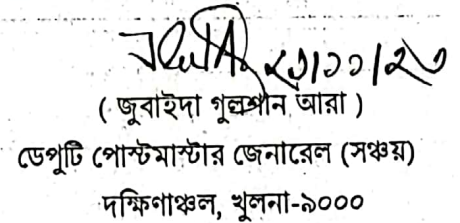 ২৩/১১/২৩
( জুবাইদা গুলশান আরা )
ডেপুটি পোস্টমাস্টার জেনারেল (সঞ্চয়)
দক্ষিণাঞ্চল, খুলনা-৯০০০